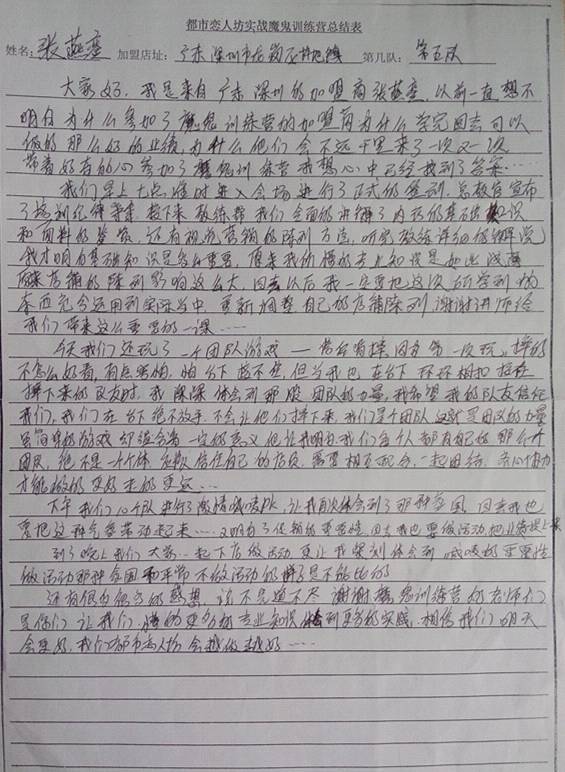 都市恋人坊实战魔鬼训练营总结表
姓名：张燕 加盟店址：广东深圳市龙岗 第几队：第五队
大家好，我是来自广东深圳的加盟商张燕，以前一直想不
明白为什么参加了魔鬼训练营的加盟商为什么学完回去可以
做的那么好的业绩，为什么他们会不远千里来了一次又一次
带着好奇的心参加了魔鬼训练营我想心中已经找到了答案……
我们早上七点准时进入会场进行了正式的签到，总教官宣布
了培训纪律等等接下来教练帮我们全面的讲解了内衣的基础知识
和面料的鉴别，还有视觉营销的陈列方法，听完教练详细的讲解完
我才明白基础知识是多么重要，原来我们懂的专业知识是如此浅薄
原来店铺的陈列影响这么大，回去以后我一定要把这次所学到的
东西充分运用到实际当中，重新调整自己的店铺陈列谢谢讲师给
我们带来这么重要的一课……
今天我们还玩了一个团队游戏——背后背摔，因为第一次玩，摔的
不怎么好看，有点害怕，怕台下接不住，但当我也在台下环环相扣接住
摔下来的队友时，我深深体会到那股团队的力量，我希望我的队友信任
我们，我们在台下绝不放手，不会让他们摔下来，我们是个团队这就是团队的力量
简单的游戏却蕴含着一定的意义他让我明白我们每个人都有自己的那么个
团队，绝不是一个个体 信任自己的店员，需要相互配合，一起团结，齐心协力
才能做的更好走的更远……
下午我们10个队进行了激情喊喊队，让我再次体会到了那种氛围，回去我也
要把这种气氛带动起来……又明白了促销的重要性，回去我也要做活动，把业绩提上来
到了晚上我们大家一起下店做活动更让我深刻体会到喊喊的重要性
做活动那种氛围和平常不做活动的样子是不能比的
还有很多很多的感想，说不完道不尽 谢谢魔鬼训练营的老师们
是你们让我们懂的更多的专业知识 到更多的实践，相信我们明天
会更好，我们都市恋人坊会越做越好……